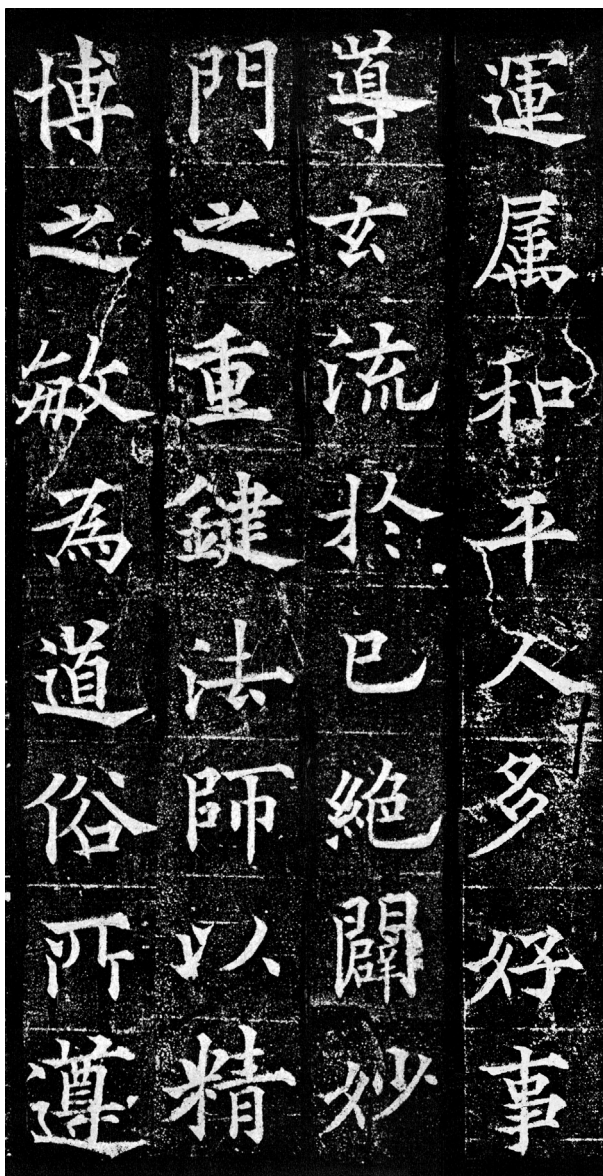 運属和平人多好事
導玄流於已絶闢妙
門之重鍵法師以精
博之敏為道俗所遵